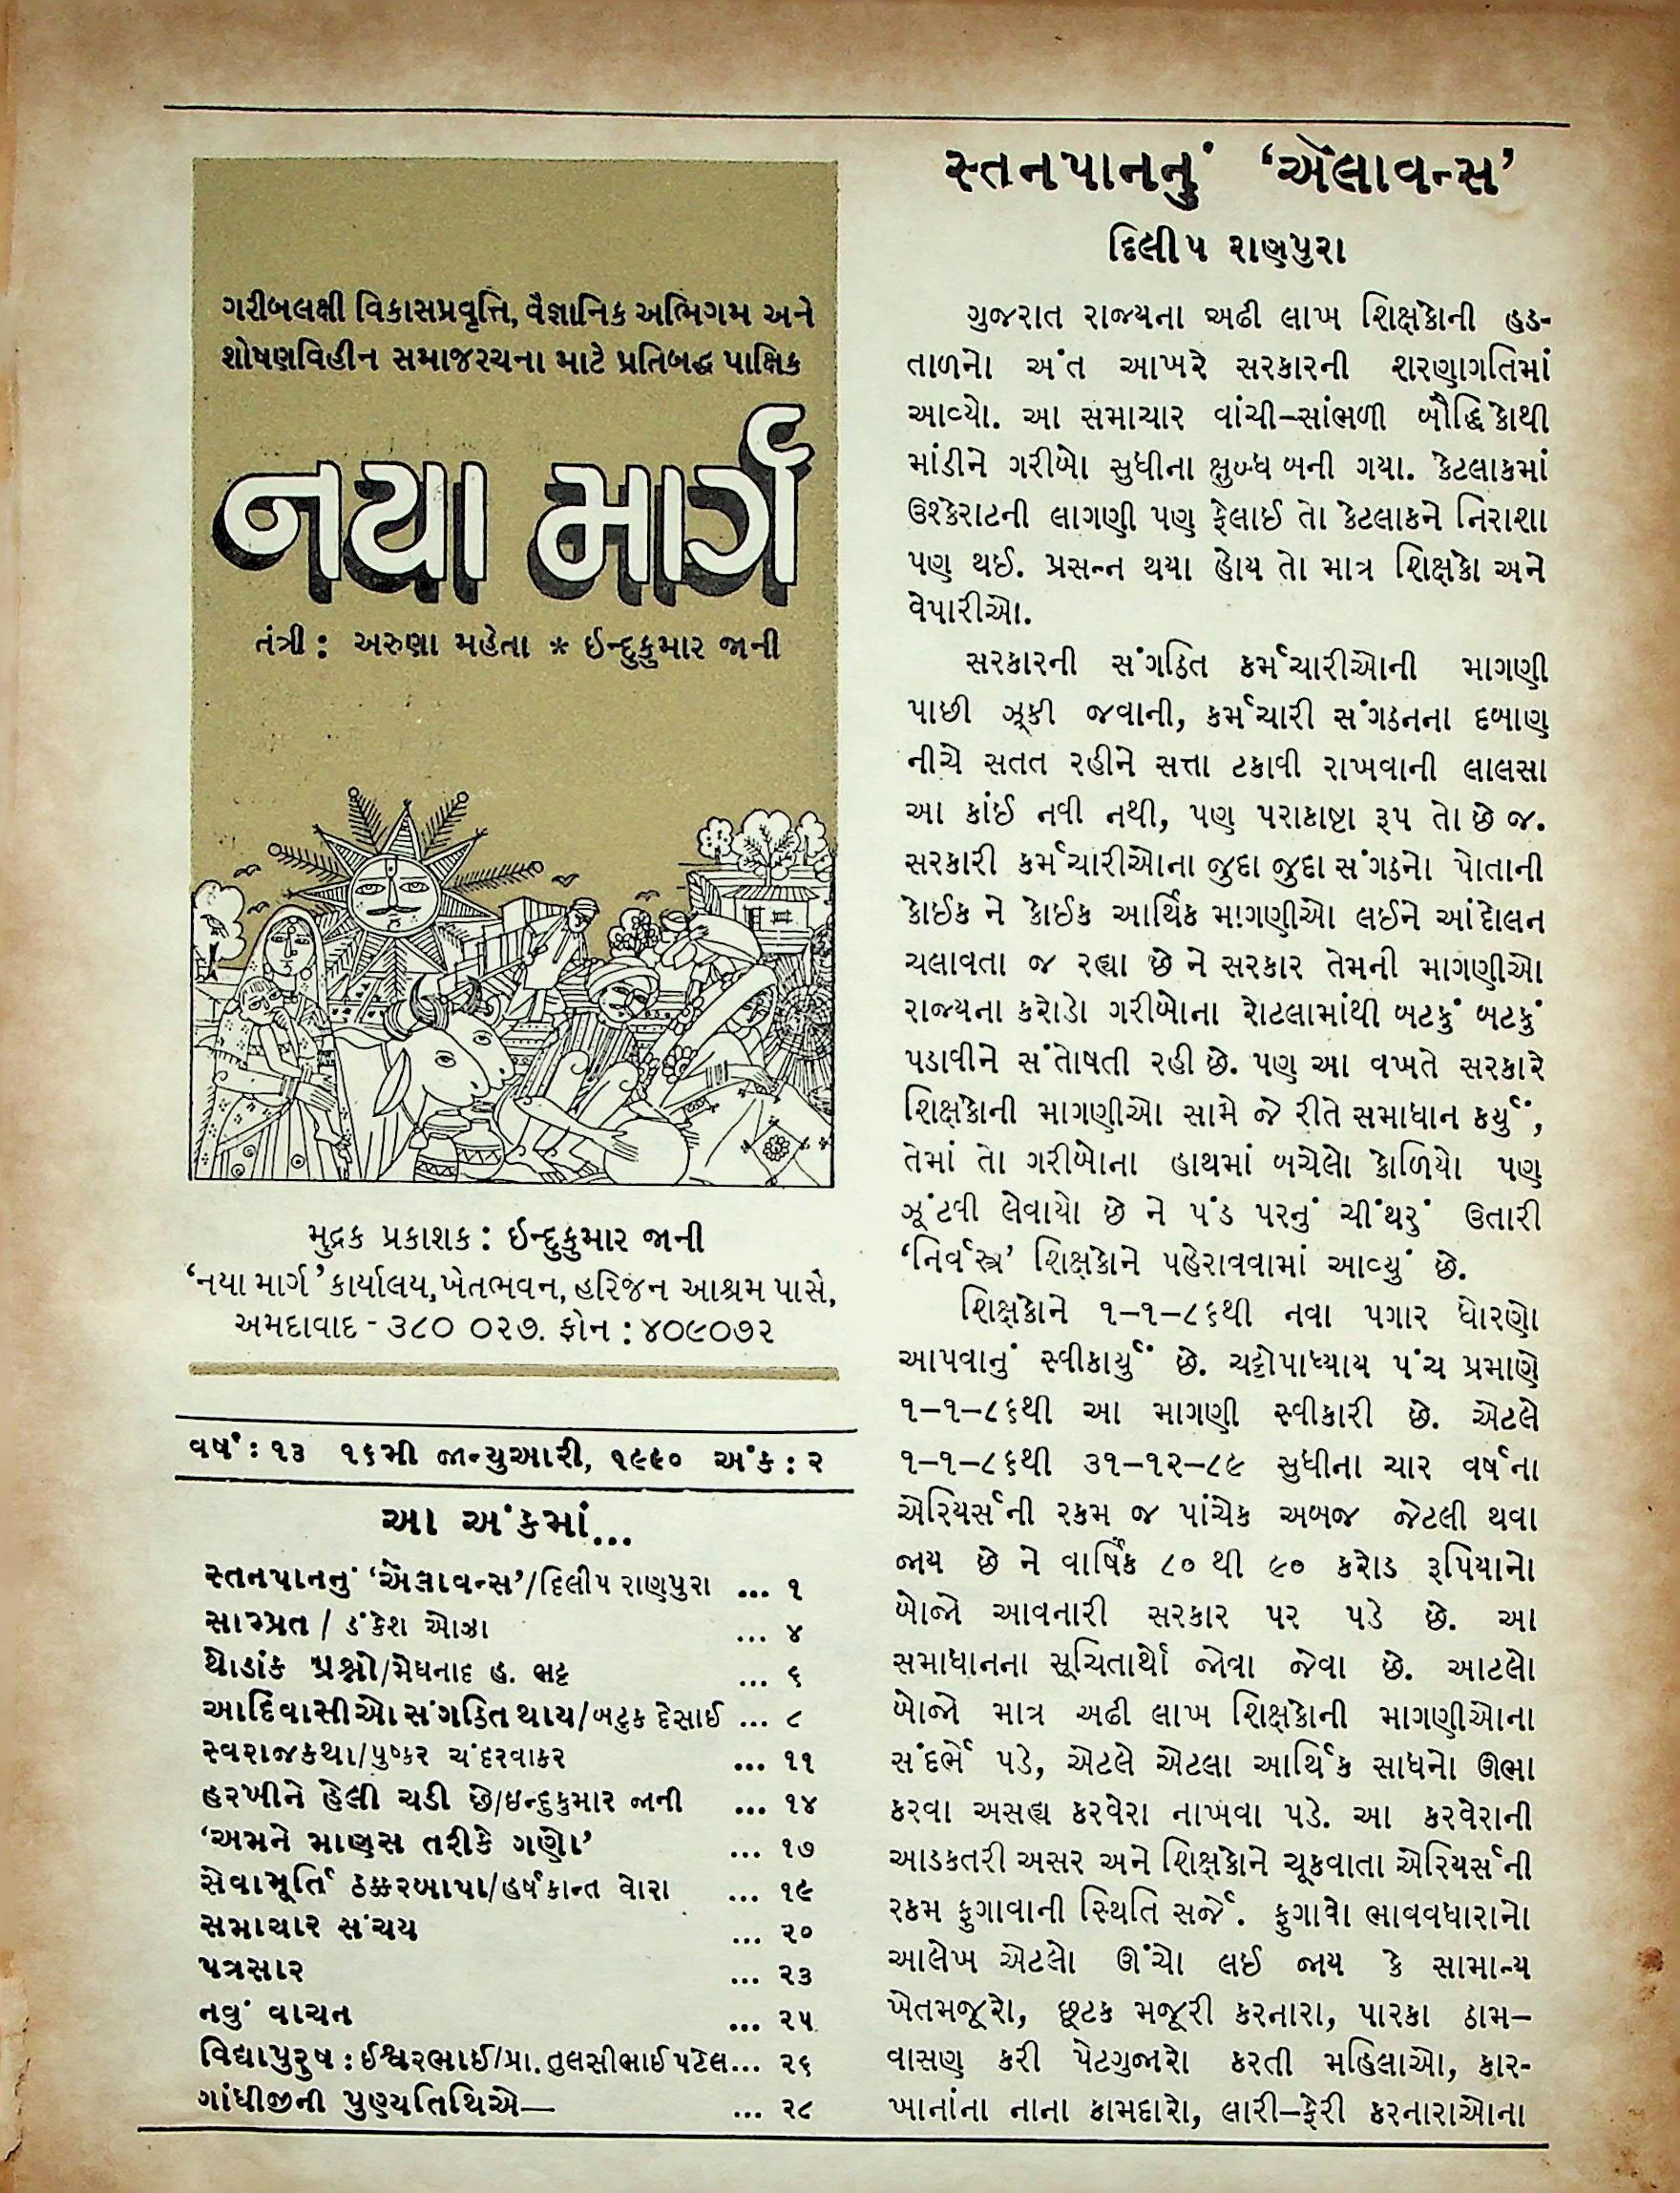 ગરીબલક્ષી વિકાસપ્રવૃત્તિ, વૈજ્ઞાનિક અભિગમ અને
શોષણવિહીન સમાજરચના માટે પ્રતિબદ્ધ પાક્ષિક
નયા માર્ગ
તંત્રી : અરુણા મહેતા * ઈન્દુકુમાર જાની
મુદ્રક પ્રકાશક : ઈન્દુકુમાર જાની
‘નયા માર્ગ’ કાર્યાલય, ખેતભવન, હરિજન આશ્રમ પાસે,
અમદાવાદ - ૩૮૦ ૦૨૭. ફોન : ૪૦૯૦૭૨
વર્ષ : ૧૩ ૧૬મી જાન્યુઆરી, ૧૯૯૦ અંક : ૨
આ અંકમાં...
સ્તનપાનનું ‘ઍલાવન્સ’/દિલીપ રાણપુરા ... ૧
સામ્પ્રત / ડંકેશ ઓઝા ... ૪
થોડાંક પ્રશ્નો/મેઘનાદ હ. ભટ્ટ ... ૬
આદિવાસીઓ સંગઠિત થાય/બટુક દેસાઈ ... ૮
સ્વરાજકથા/પુષ્કર ચંદરવાકર ... ૧૧
હરખીને હેલી ચડી છે/ઇન્દુકુમાર જાની ... ૧૪
‘અમને માણસ તરીકે ગણો’ ... ૧૭
સેવામૂર્તિ ઠક્કરબાપા/હર્ષકાન્ત વોરા ... ૧૯
સમાચાર સંચય ... ૨૦
પત્રસાર ... ૨૩
નવું વાચન ... ૨૫
વિદ્યાપુરુષ : ઈશ્વરભાઈ/પ્રા. તુલસીભાઈ પટેલ... ૨૬
ગાંધીજીની પુણ્યતિથિએ— ... ૨૮
સ્તનપાનનું ‘ઍલાવન્સ’
દિલીપ રાણપુરા
ગુજરાત રાજ્યના અઢી લાખ શિક્ષકોની હડ-
તાળનો અંત આખરે સરકારની શરણાગતિમાં
આવ્યો. આ સમાચાર વાંચી–સાંભળી બૌદ્ધિકોથી
માંડીને ગરીબો સુધીના ક્ષુબ્ધ બની ગયા. કેટલાકમાં
ઉશ્કેરાટની લાગણી પણ ફેલાઈ તો કેટલાકને નિરાશા
પણ થઈ. પ્રસન્ન થયા હોય તો માત્ર શિક્ષકો અને
વેપારીઓ.
સરકારની સંગઠિત કર્મચારીઓની માગણી
પાછી ઝૂકી જવાની, કર્મચારી સંગઠનના દબાણ
નીચે સતત રહીને સત્તા ટકાવી રાખવાની લાલસા
આ કાંઈ નવી નથી, પણ પરાકાષ્ટા રૂપ તો છે જ.
સરકારી કર્મચારીઓના જુદા જુદા સંગઠનો પોતાની
કોઈક ને કોઈક આર્થિક માગણીઓ લઈને આંદોલન
ચલાવતા જ રહ્યા છે ને સરકાર તેમની માગણીઓ
રાજ્યના કરોડો ગરીબોના રોટલામાંથી બટકું બટકું
પડાવીને સંતોષતી રહી છે. પણ આ વખતે સરકારે
શિક્ષકોની માગણીઓ સામે જે રીતે સમાધાન કર્યું,
તેમાં તો ગરીબોના હાથમાં બચેલો કોળિયો પણ
ઝૂંટવી લેવાયો છે ને પંડ પરનું ચીંથરું ઉતારી
‘નિર્વસ્ત્ર’ શિક્ષકોને પહેરાવવામાં આવ્યું છે.
શિક્ષકોને ૧–૧–૮૬થી નવા પગાર ધોરણો
આપવાનું સ્વીકાર્યું છે. ચટ્ટોપાધ્યાય પંચ પ્રમાણે
૧–૧–૮૬થી આ માગણી સ્વીકારી છે. એટલે
૧–૧–૮૬થી ૩૧–૧૨–૮૯ સુધીના ચાર વર્ષના
એરિયર્સની રકમ જ પાંચેક અબજ જેટલી થવા
જાય છે ને વાર્ષિક ૮૦ થી ૯૦ કરોડ રૂપિયાનો
બોજો આવનારી સરકાર પર પડે છે. આ
સમાધાનના સૂચિતાર્થો જોવા જેવા છે. આટલો
બોજો માત્ર અઢી લાખ શિક્ષકોની માગણીઓના
સંદર્ભે પડે, એટલે એટલા આર્થિક સાધનો ઊભા
કરવા અસહ્ય કરવેરા નાખવા પડે. આ કરવેરાની
આડકતરી અસર અને શિક્ષકોને ચૂકવાતા એરિયર્સની
રકમ ફુગાવાની સ્થિતિ સર્જે. ફુગાવો ભાવવધારાનો
આલેખ એટલો ઊંચો લઈ જાય કે સામાન્ય
ખેતમજૂરો, છૂટક મજૂરી કરનારા, પારકા ઠામ–
વાસણ કરી પેટગુજારો કરતી મહિલાઓ, કાર-
ખાનાંના નાના કામદારો, લારી–ફેરી કરનારાઓના